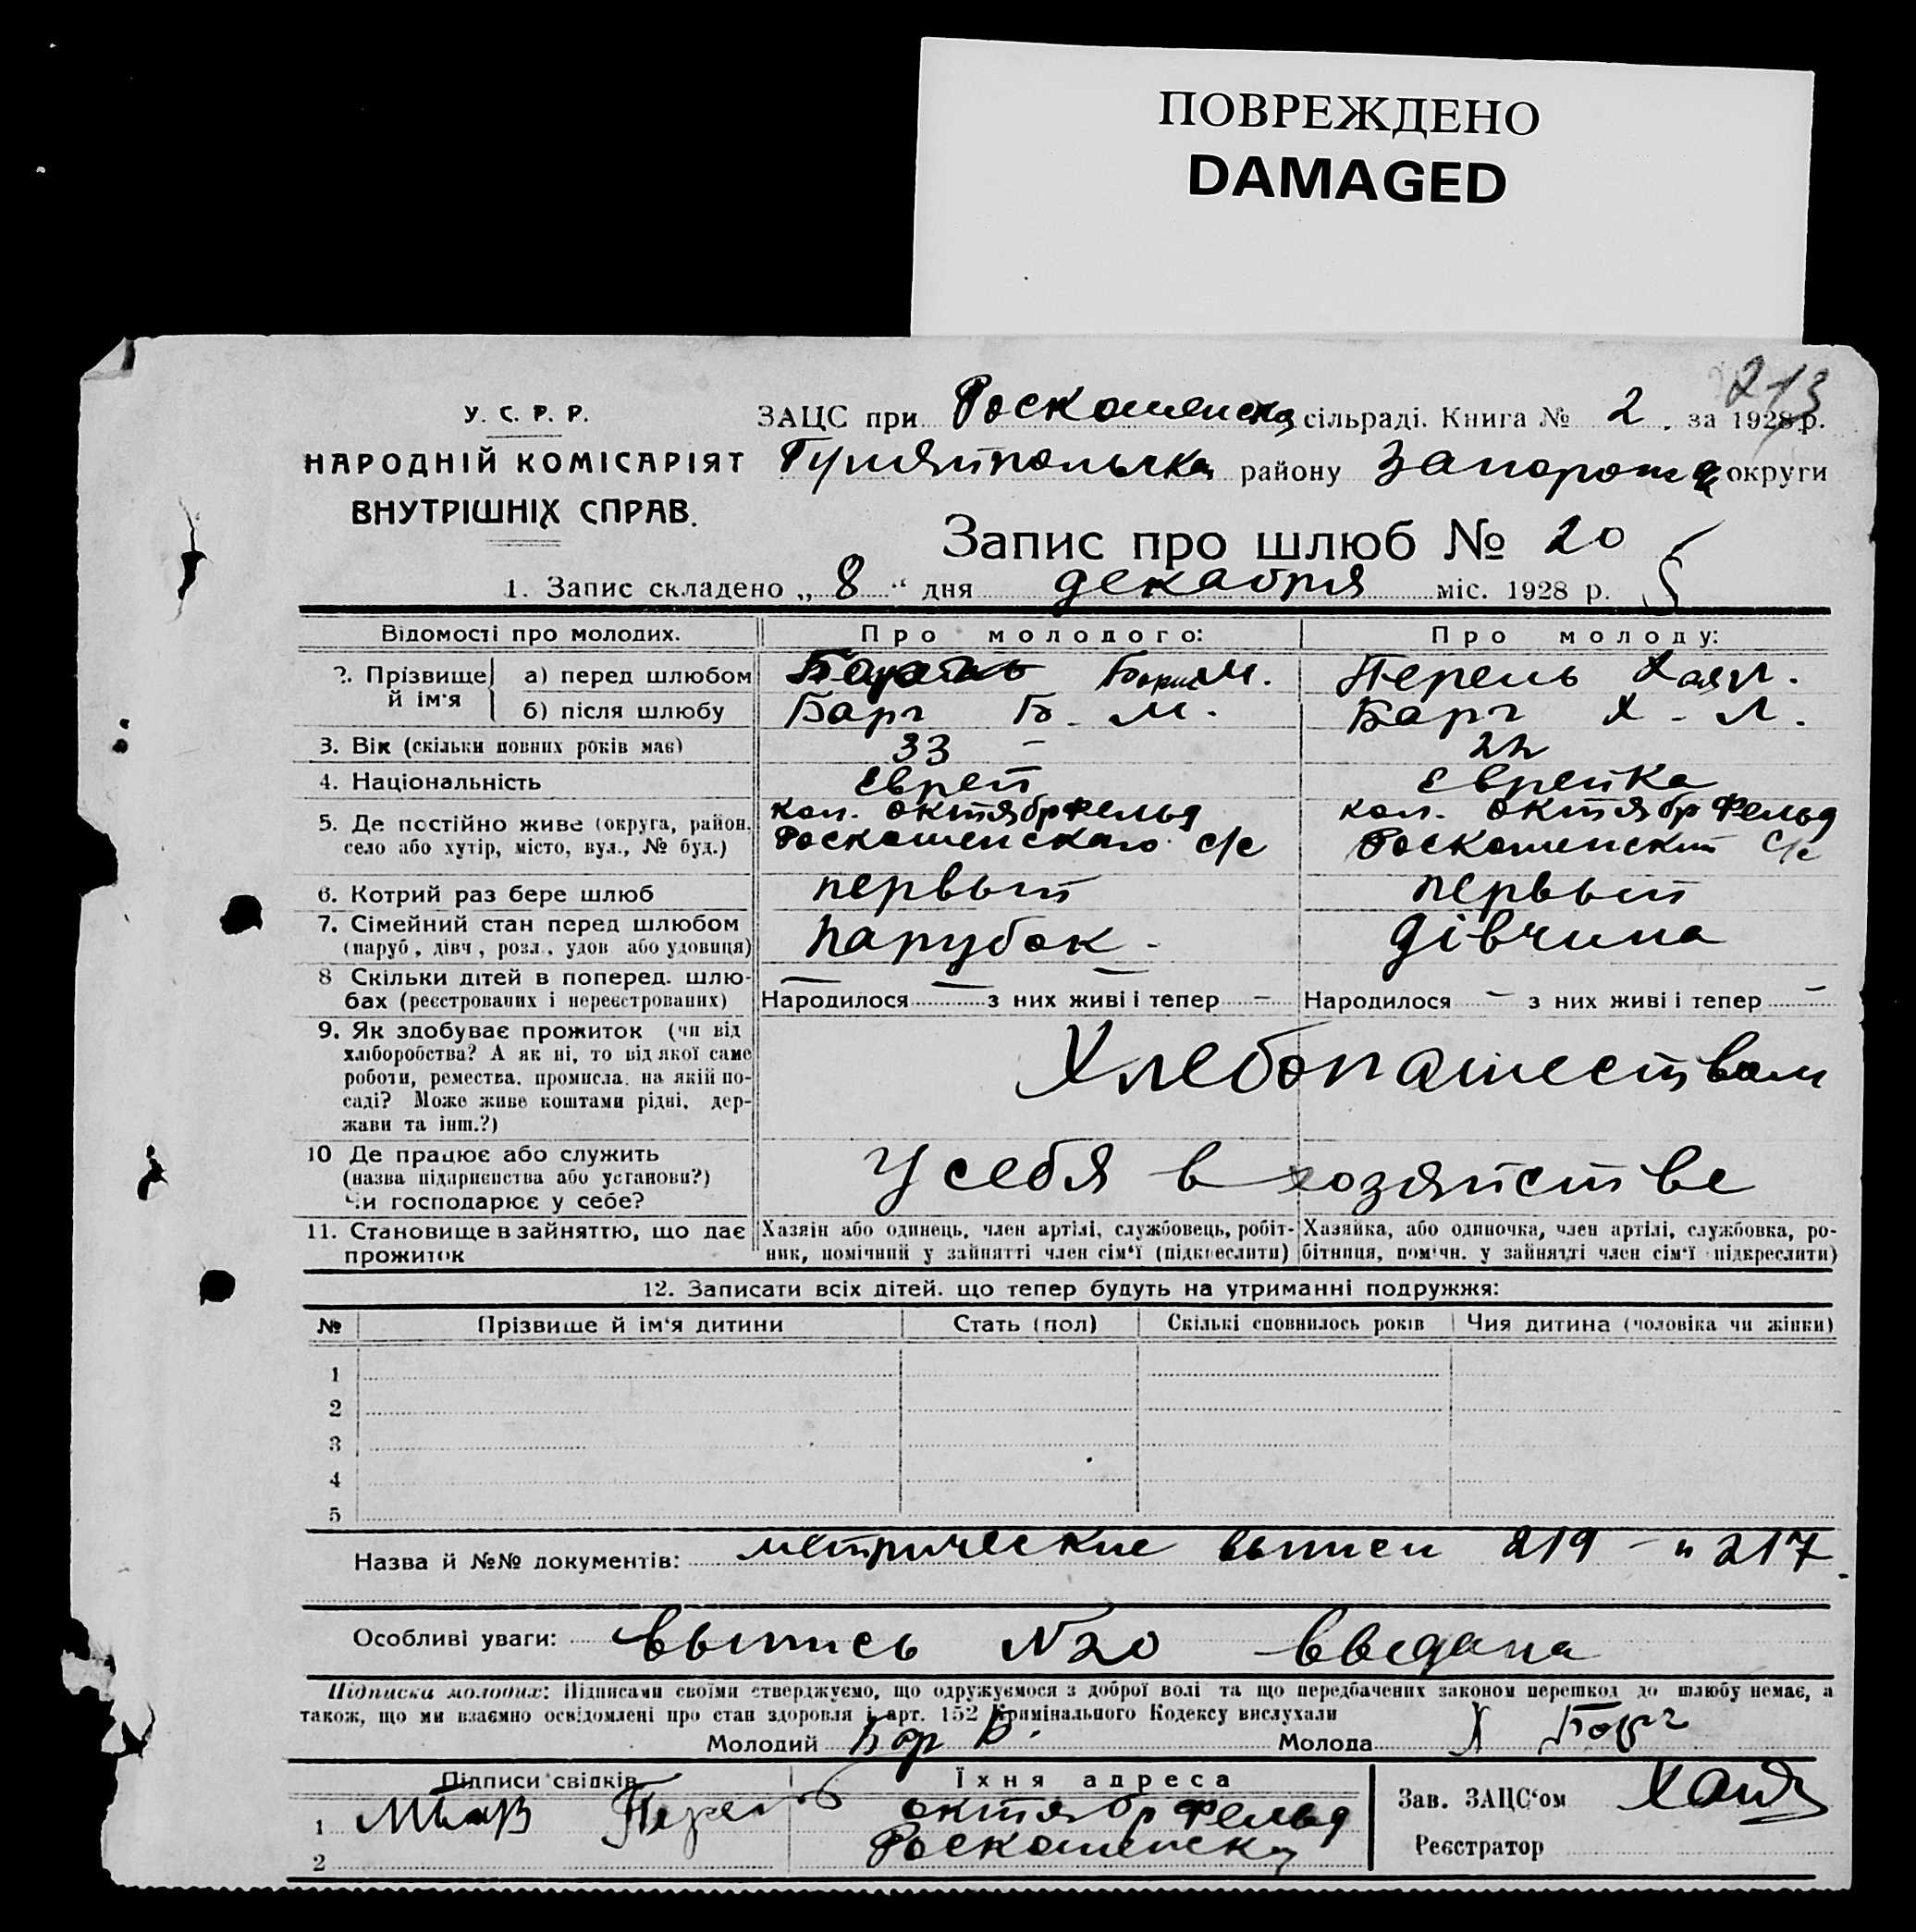 ПОВРЕЖДЕНО
DAMAGED
213
У. С. Р. Р.
НАРОДНІЙ КОМІСАРІЯТ
ВНУТРІШНІХ СПРАВ.
ЗАЦС при сільраді. Книга № 2. за 1928 р.
району округи
Запис про шлюб № 20
1. Запис складено „ 8 “ дня декабря міс. 1928 р.
Відомості про молодих. Про молодого: Про молоду:
2. Прізвище й ім'я а) перед шлюбом Борис М. Перель Хая Л.
б) після шлюбу Барг Б. М. Барг Х. Л.
3. Вік (скільки повних років має) 33 - 22
4. Національність Еврей Еврейка
5. Де постійно живе (округа, район, село або хутір, місто, вул., № буд.) кол. Октябрфельд Роскошенского с/с кол. Октябрфельд Роскошенский с/с
6. Котрий раз бере шлюб первый первый
7. Сімейний стан перед шлюбом (паруб., дівч., розл., удов. або удовиця) парубок - дівчина
8 Скільки дітей в поперед. шлюбах (реєстрованих і нереєстрованих) Народилося — з них живі і тепер — Народилося — з них живі і тепер —
9. Як здобуває прожиток (чи від хліборобства? А як ні, то від якої саме роботи, ремества, промисла, на якій посаді? Може живе коштами рідні, держави та інш.?) Хлебопашеством
10 Де працює або служить (назва підприємства або установи?) Чи господарює у себе? У себя в хозяйстве
11. Становище в зайняттю, що дає прожиток Хазяїн або одинець, член артілі, службовець, робітник, помічний у зайнятті член сім'ї (підкреслити) Хазяйка, або одиночка, член артілі, службовка, робітниця, помічн. у зайнятті член сім'ї (підкреслити)
12. Записати всіх дітей, що тепер будуть на утриманні подружжя:
№ Прізвище й ім'я дитини Стать (пол) Скількі сповнилось років Чия дитина (чоловіка чи жінки)
1
2
3
4
5
Назва й №№ документів: метрические выписи 219 - и 217
Особливі уваги: выпись N 20 введана
Підписка молодих: Підписами своїми стверджуємо, що одружуємося з доброї волі та що передбачених законом перешкод до шлюбу немає, а
також, що ми взаємно освідомлені про стан здоровля і арт. 152 Крімінального Кодексу вислухали
Молодий Бар Б. Молода Х Барг
Підписи свідків Їхня адреса
1 Перель Октябрфельд
2 Роскошенск
Зав. ЗАЦС'ом
Реєстратор